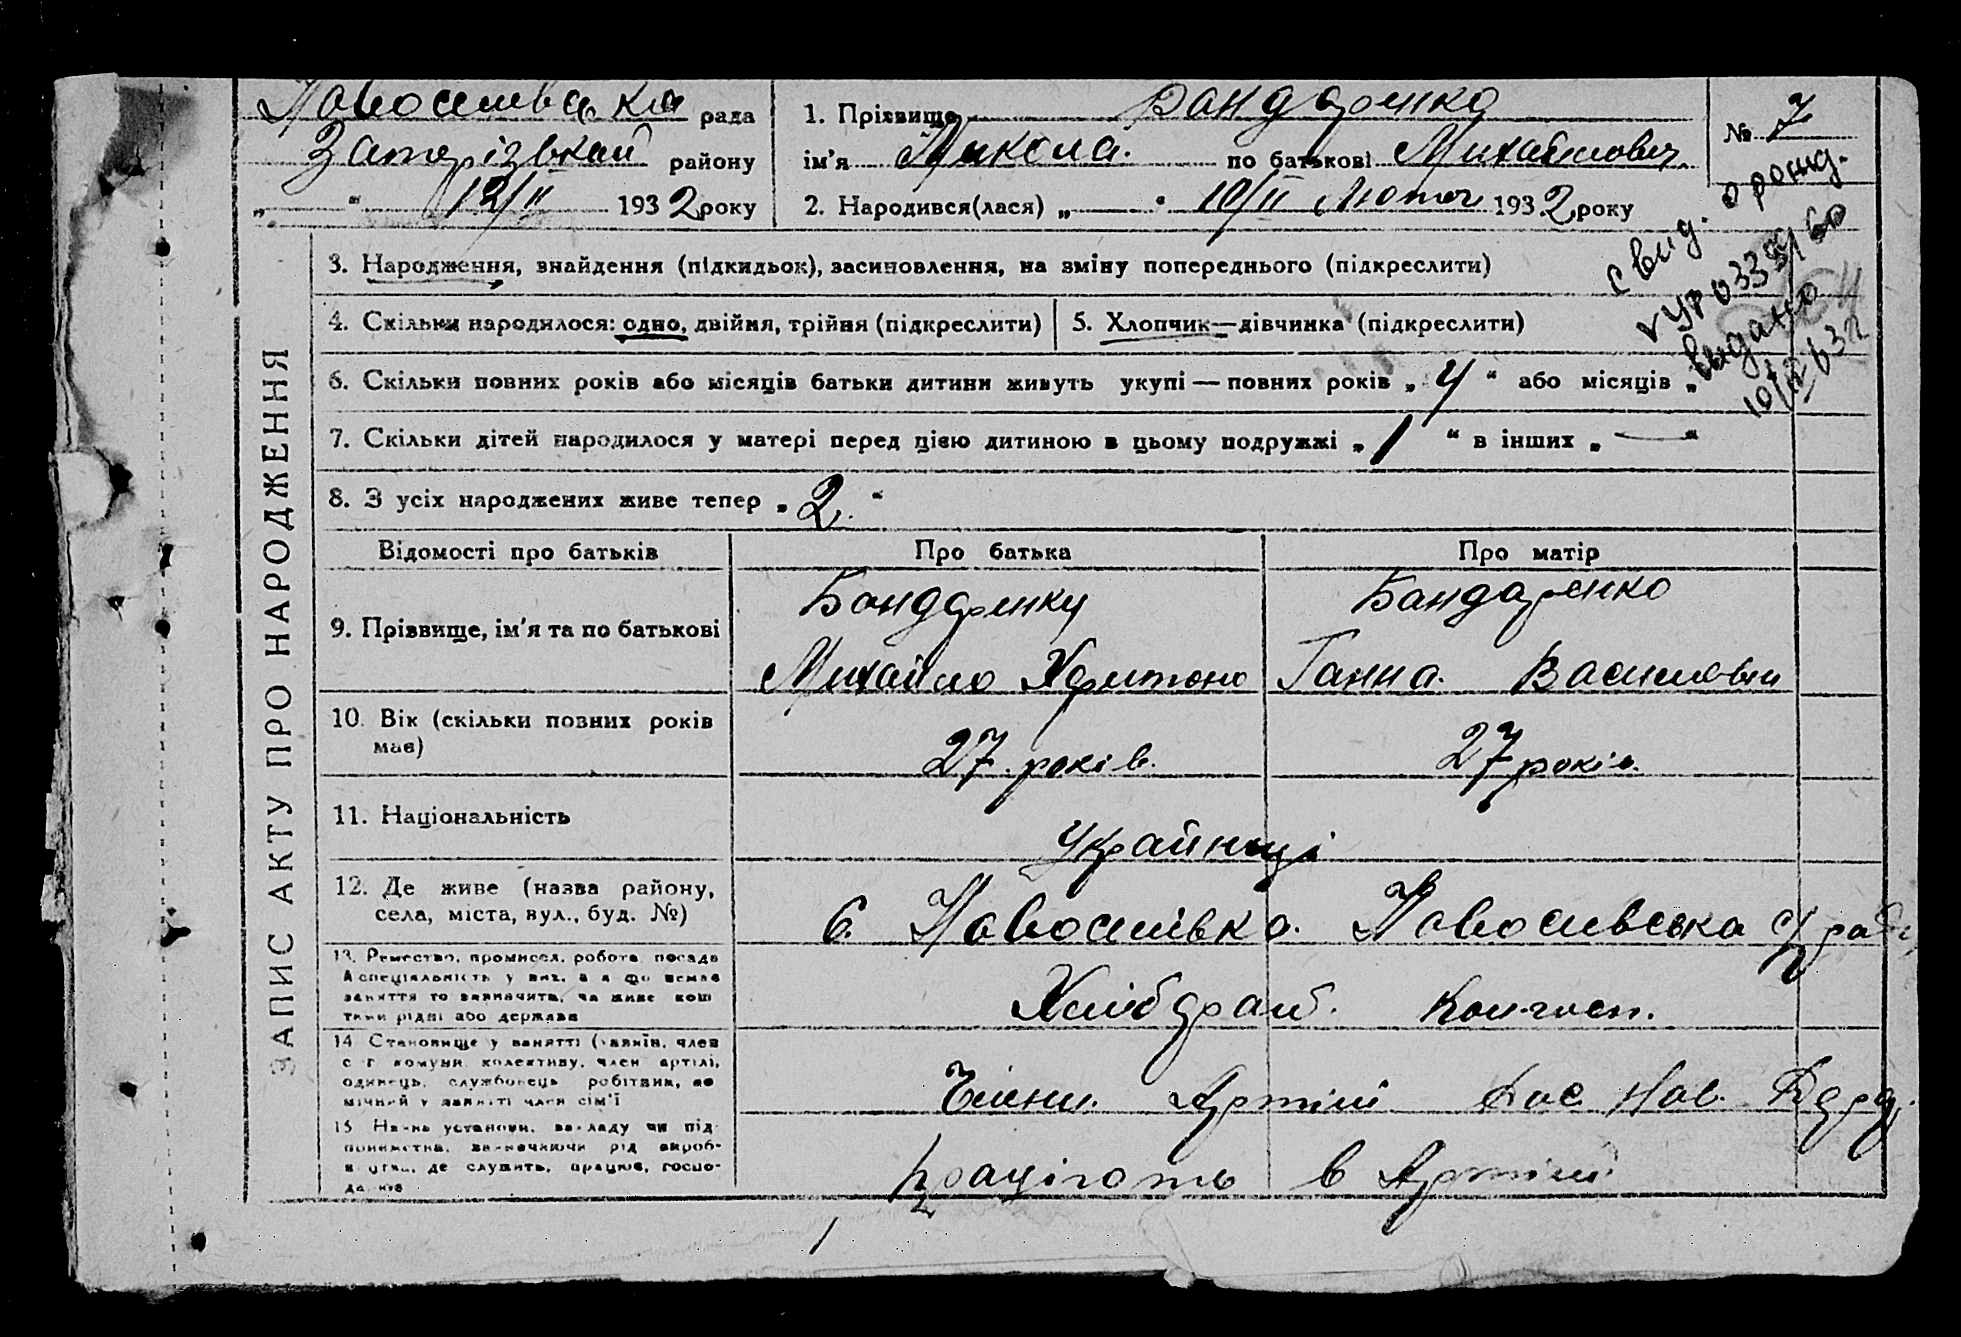 Новоселівська рада
Запорізький району
„ “ 12/II 1932 року
1. Прізвище Бондаренко
ім'я Микола по батькові Михайлович
2. Народився(лася) „ “ 10/II Лютог 1932 року
№ 7
свид. о рожд.
V УР 0333
выдано
ЗАПИС АКТУ ПРО НАРОДЖЕННЯ
3. Народження, знайдення (підкидьок), засиновлення, на зміну попереднього (підкреслити)
4. Скільки народилося: одно, двійня, трійня (підкреслити)
5. Хлопчик—дівчинка (підкреслити)
6. Скільки повних років або місяців батьки дитини живуть укупі — повних років „ 4 “ або місяців „
7. Скільки дітей народилося у матері перед цією дитиною в цьому подружжі „ 1 “ в інших „ — “
8. З усіх народжених живе тепер „ 2. “
Відомості про батьків
Про батька
Про матір
9. Прізвище, ім'я та по батькові
Бондаренку
Михайло Харитоно
Бандаренко
Ганна Васильовни
10. Вік (скільки повних років має)
27 років.
27 років.
11. Національність
Українці
12. Де живе (назва району,
села, міста, вул., буд. №)
с. Новоселівка. Новоселівська с/рада
13. Ремество, промисел, робота, посада
й спеціяльність у них, а якщо немає
заняття то зазначити, чи живе кошт
тами рідні або держави
Хлібороб. Колгосп.
14 Становище у занятті (хазяїн, член
с г комуни, колективу, член артілі,
одинець, службовець робітник, по
мічний у занятті член сім'ї
Члени Артілі
15 Назва установи, закладу чи під
приємства, зазначаючи рід вироб-
ництва, де служить, працює, госпо-
дарює
працюють в Артілі